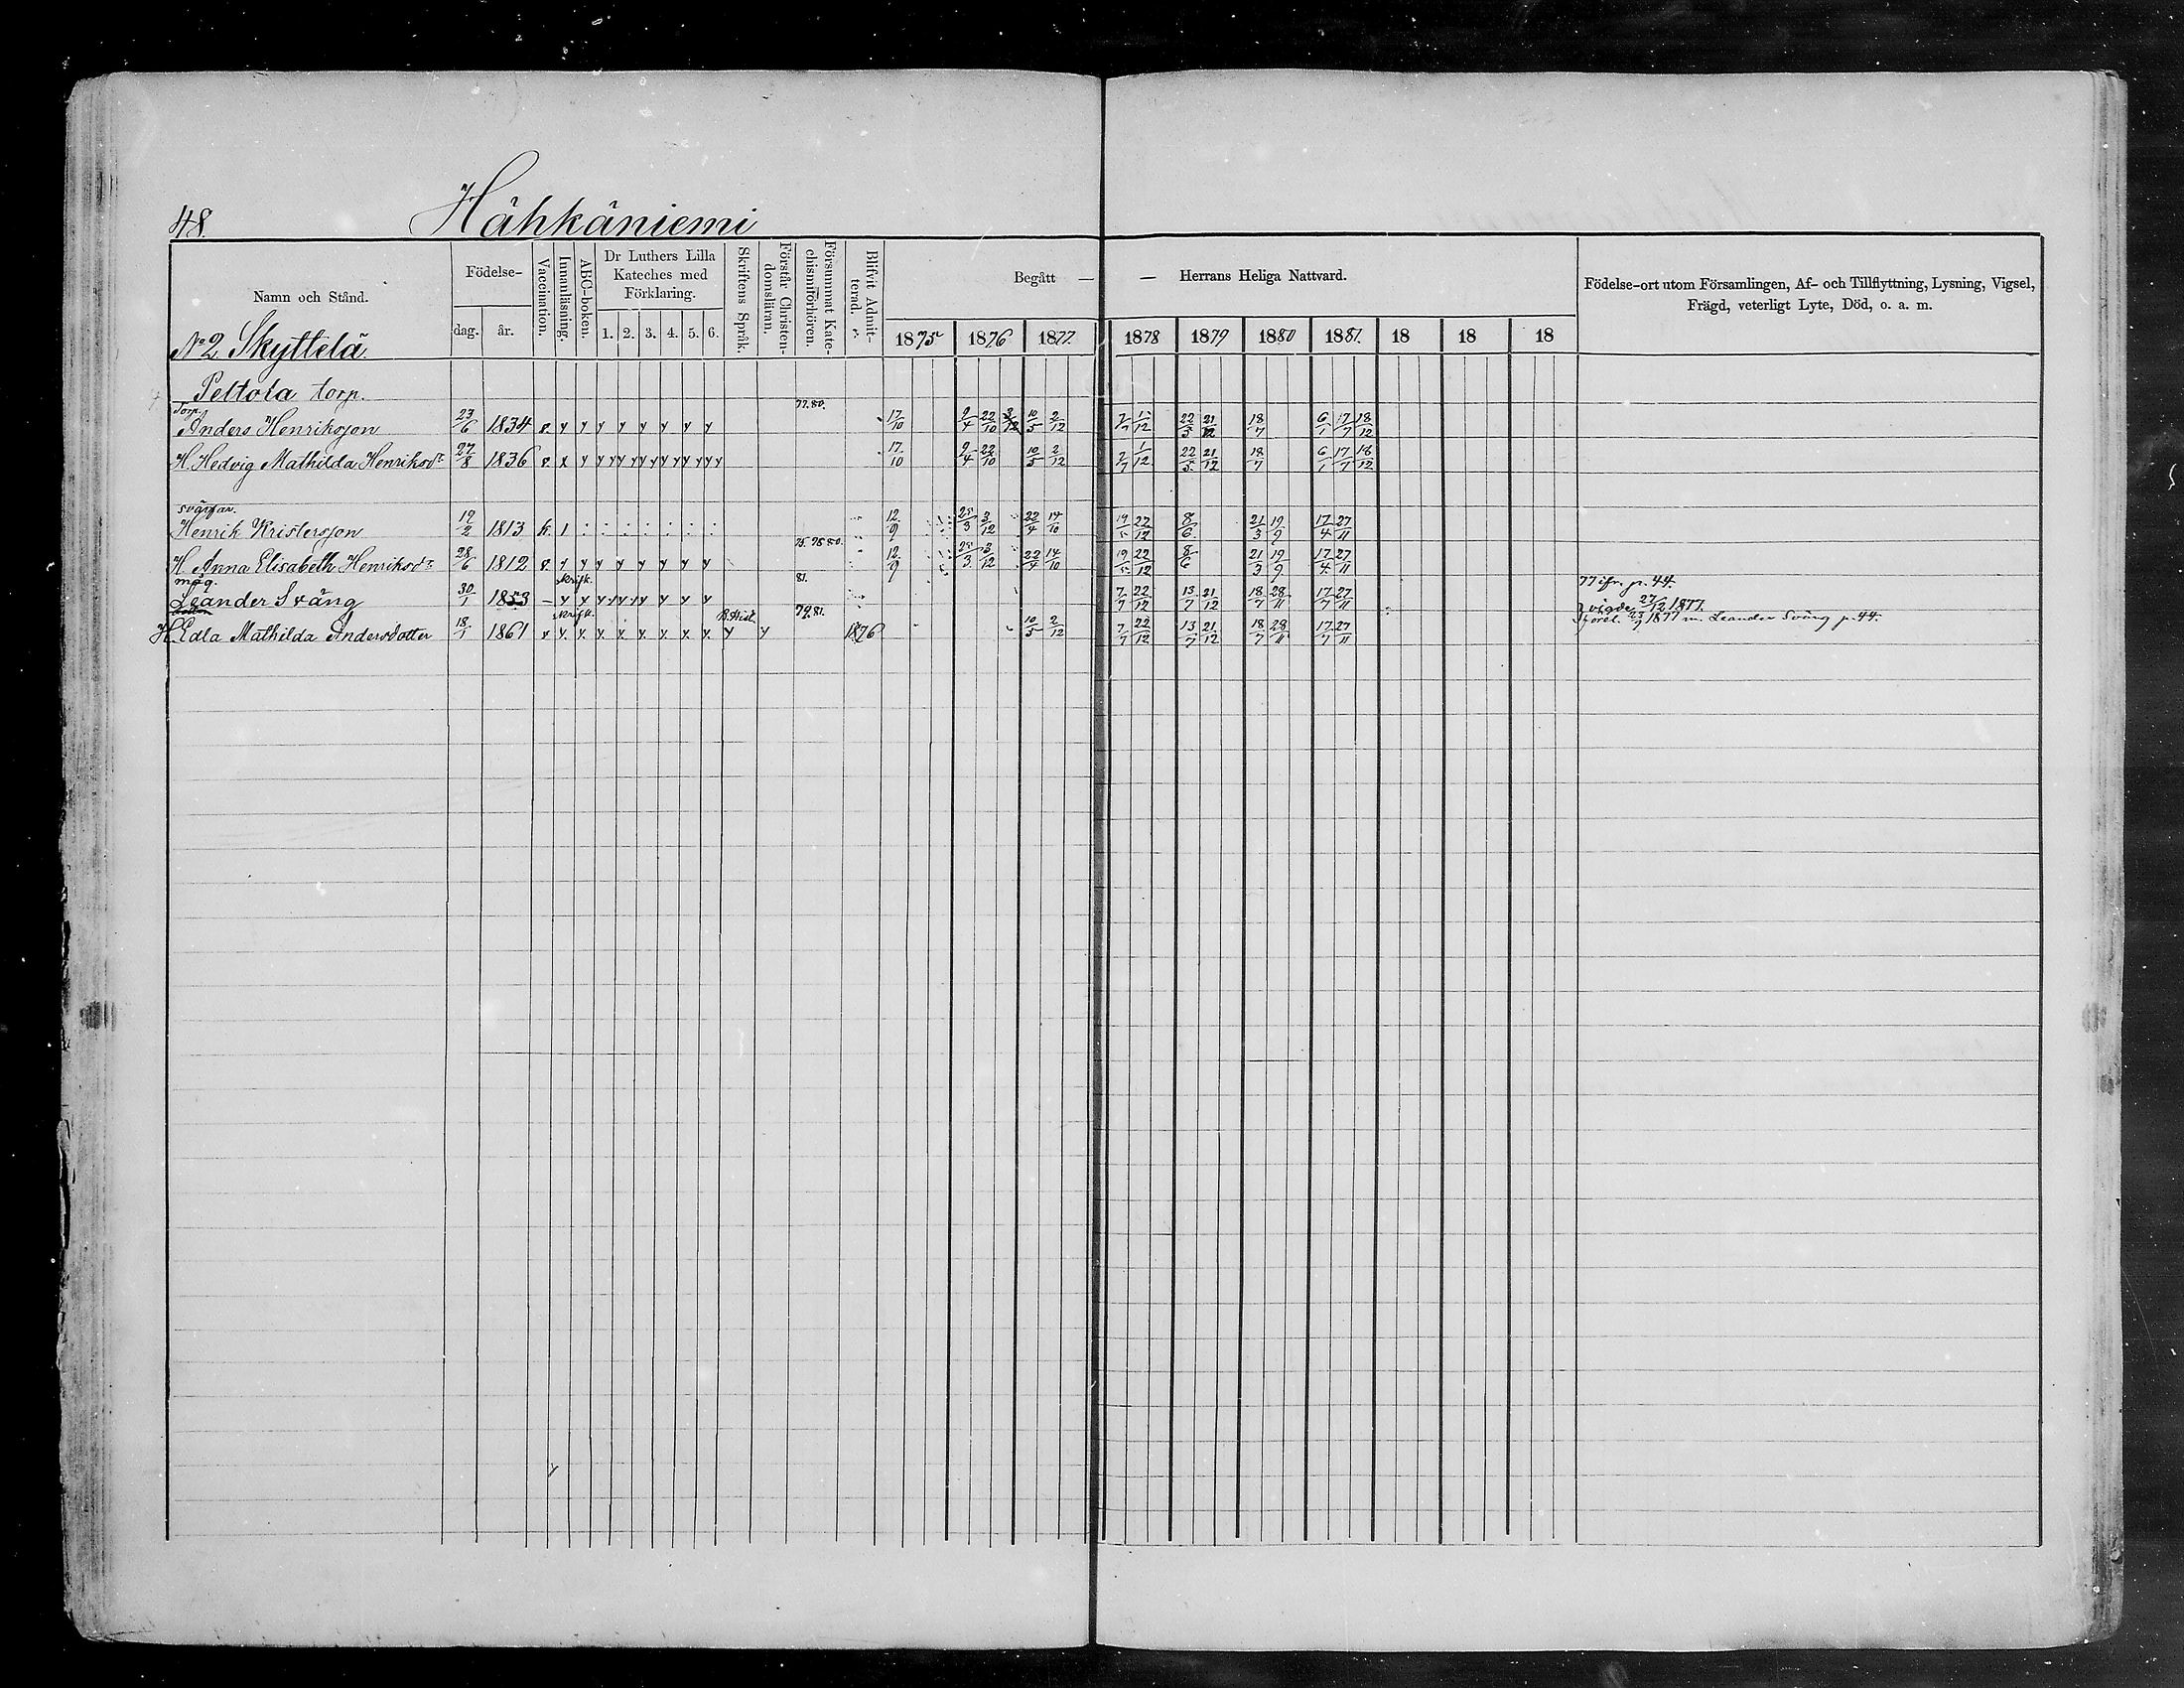 48. Hähkäniemi
Namn och Stånd.
Födelse-
dag. år.
Vaccination.
Innanläsning.
ABC-boken.
Dr Luthers Lilla Kateches med Förklaring.
1. 2. 3. 4. 5. 6.
Skriftens Språk.
Förstår Christendomsläran.
Försummat Katechismiförhören.
Blifvit Admitterad.
Begått — — Herrans Heliga Nattvard.
1875 1876 1877 1878 1879 1880 1881. 18 18 18
Födelse-ort utom Församlingen, Af- och Tillflyttning, Lysning, Vigsel,
Frägd, veterligt Lyte, Död, o. a. m.
No 2 Skyttelä
Peltola torp.
Torp. 77.80.
Anders Henriksson 23/6 1834 v. y y y y y y y y 17/10 9/4 22/10 3/12 10/5 2/12 7/7 1/12 22/5 21/12 18/7 6/1 17/7 18/12
H. Hedvig Mathilda Henriksdr 27/8 1836 v. x y y yy yy yy yy yy yy 17/10 9/4 22/10 10/5 2/12 7/7 1/12 22/5 21/12 18/7 6/1 17/7 18/12
svärfar.
Henrik Kristersson 19/2 1813 k. 1 : : : : : : : 12/9 25/3 3/12 22/4 14/10 19/5 22/12 8/6 21/3 19/9 17/4 27/11
75. 78 80.
H. Anna Elisabeth Henriksdr 28/6 1812 v. y y y y y y y y 12/9 25/3 3/12 22/4 14/10 19/5 22/12 8/6 21/3 19/9 17/4 27/11
måg. skrifk. 81. 77 ifr. p. 44.
Leander Sväng 30/1 1853 – y y y y y y y y 7/7 22/12 13/7 21/12 18/7 28/11 17/7 27/11 vigde 27/12 1877.
skrifk. B. Hist. 79. 81.
H. Edla Mathilda Andersdotter 18/1 1861 v y. y. y. y. y. y. y. y. y y 1876 10/5 2/12 7/7 22/12 13/7 21/12 18/7 28/11 17/7 27/11 1877 m. Leander Sväng p. 44.